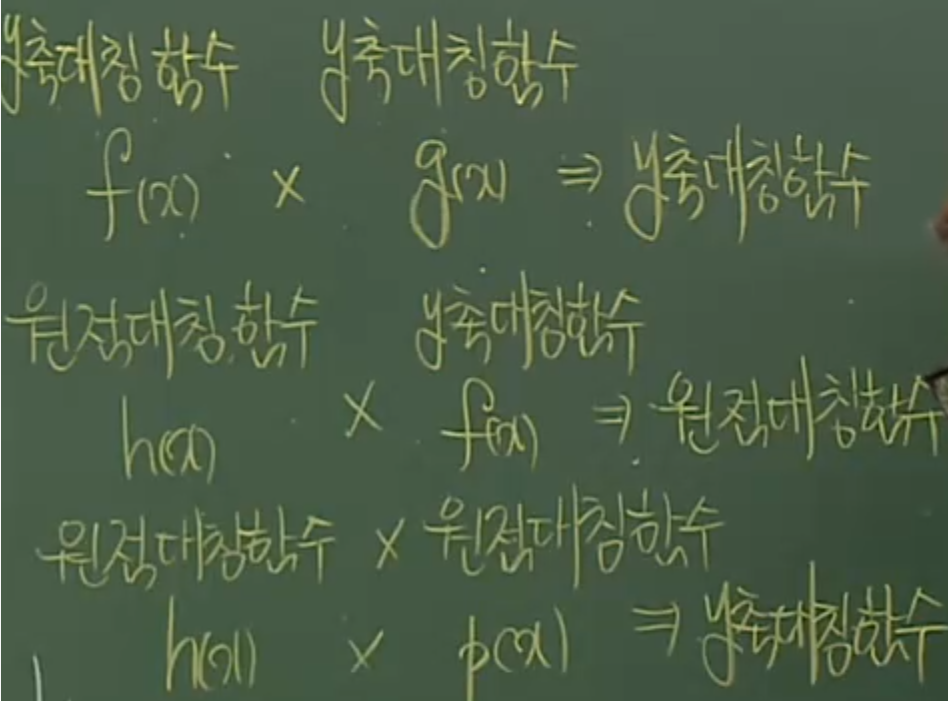 y축대칭함수 y축대칭함수
f(x) × g(x) ⇒ y축대칭함수
원점대칭함수 y축대칭함수
h(x) × f(x) ⇒ 원점대칭함수
원점대칭함수 × 원점대칭함수
h(x) × p(x) ⇒ y축대칭함수